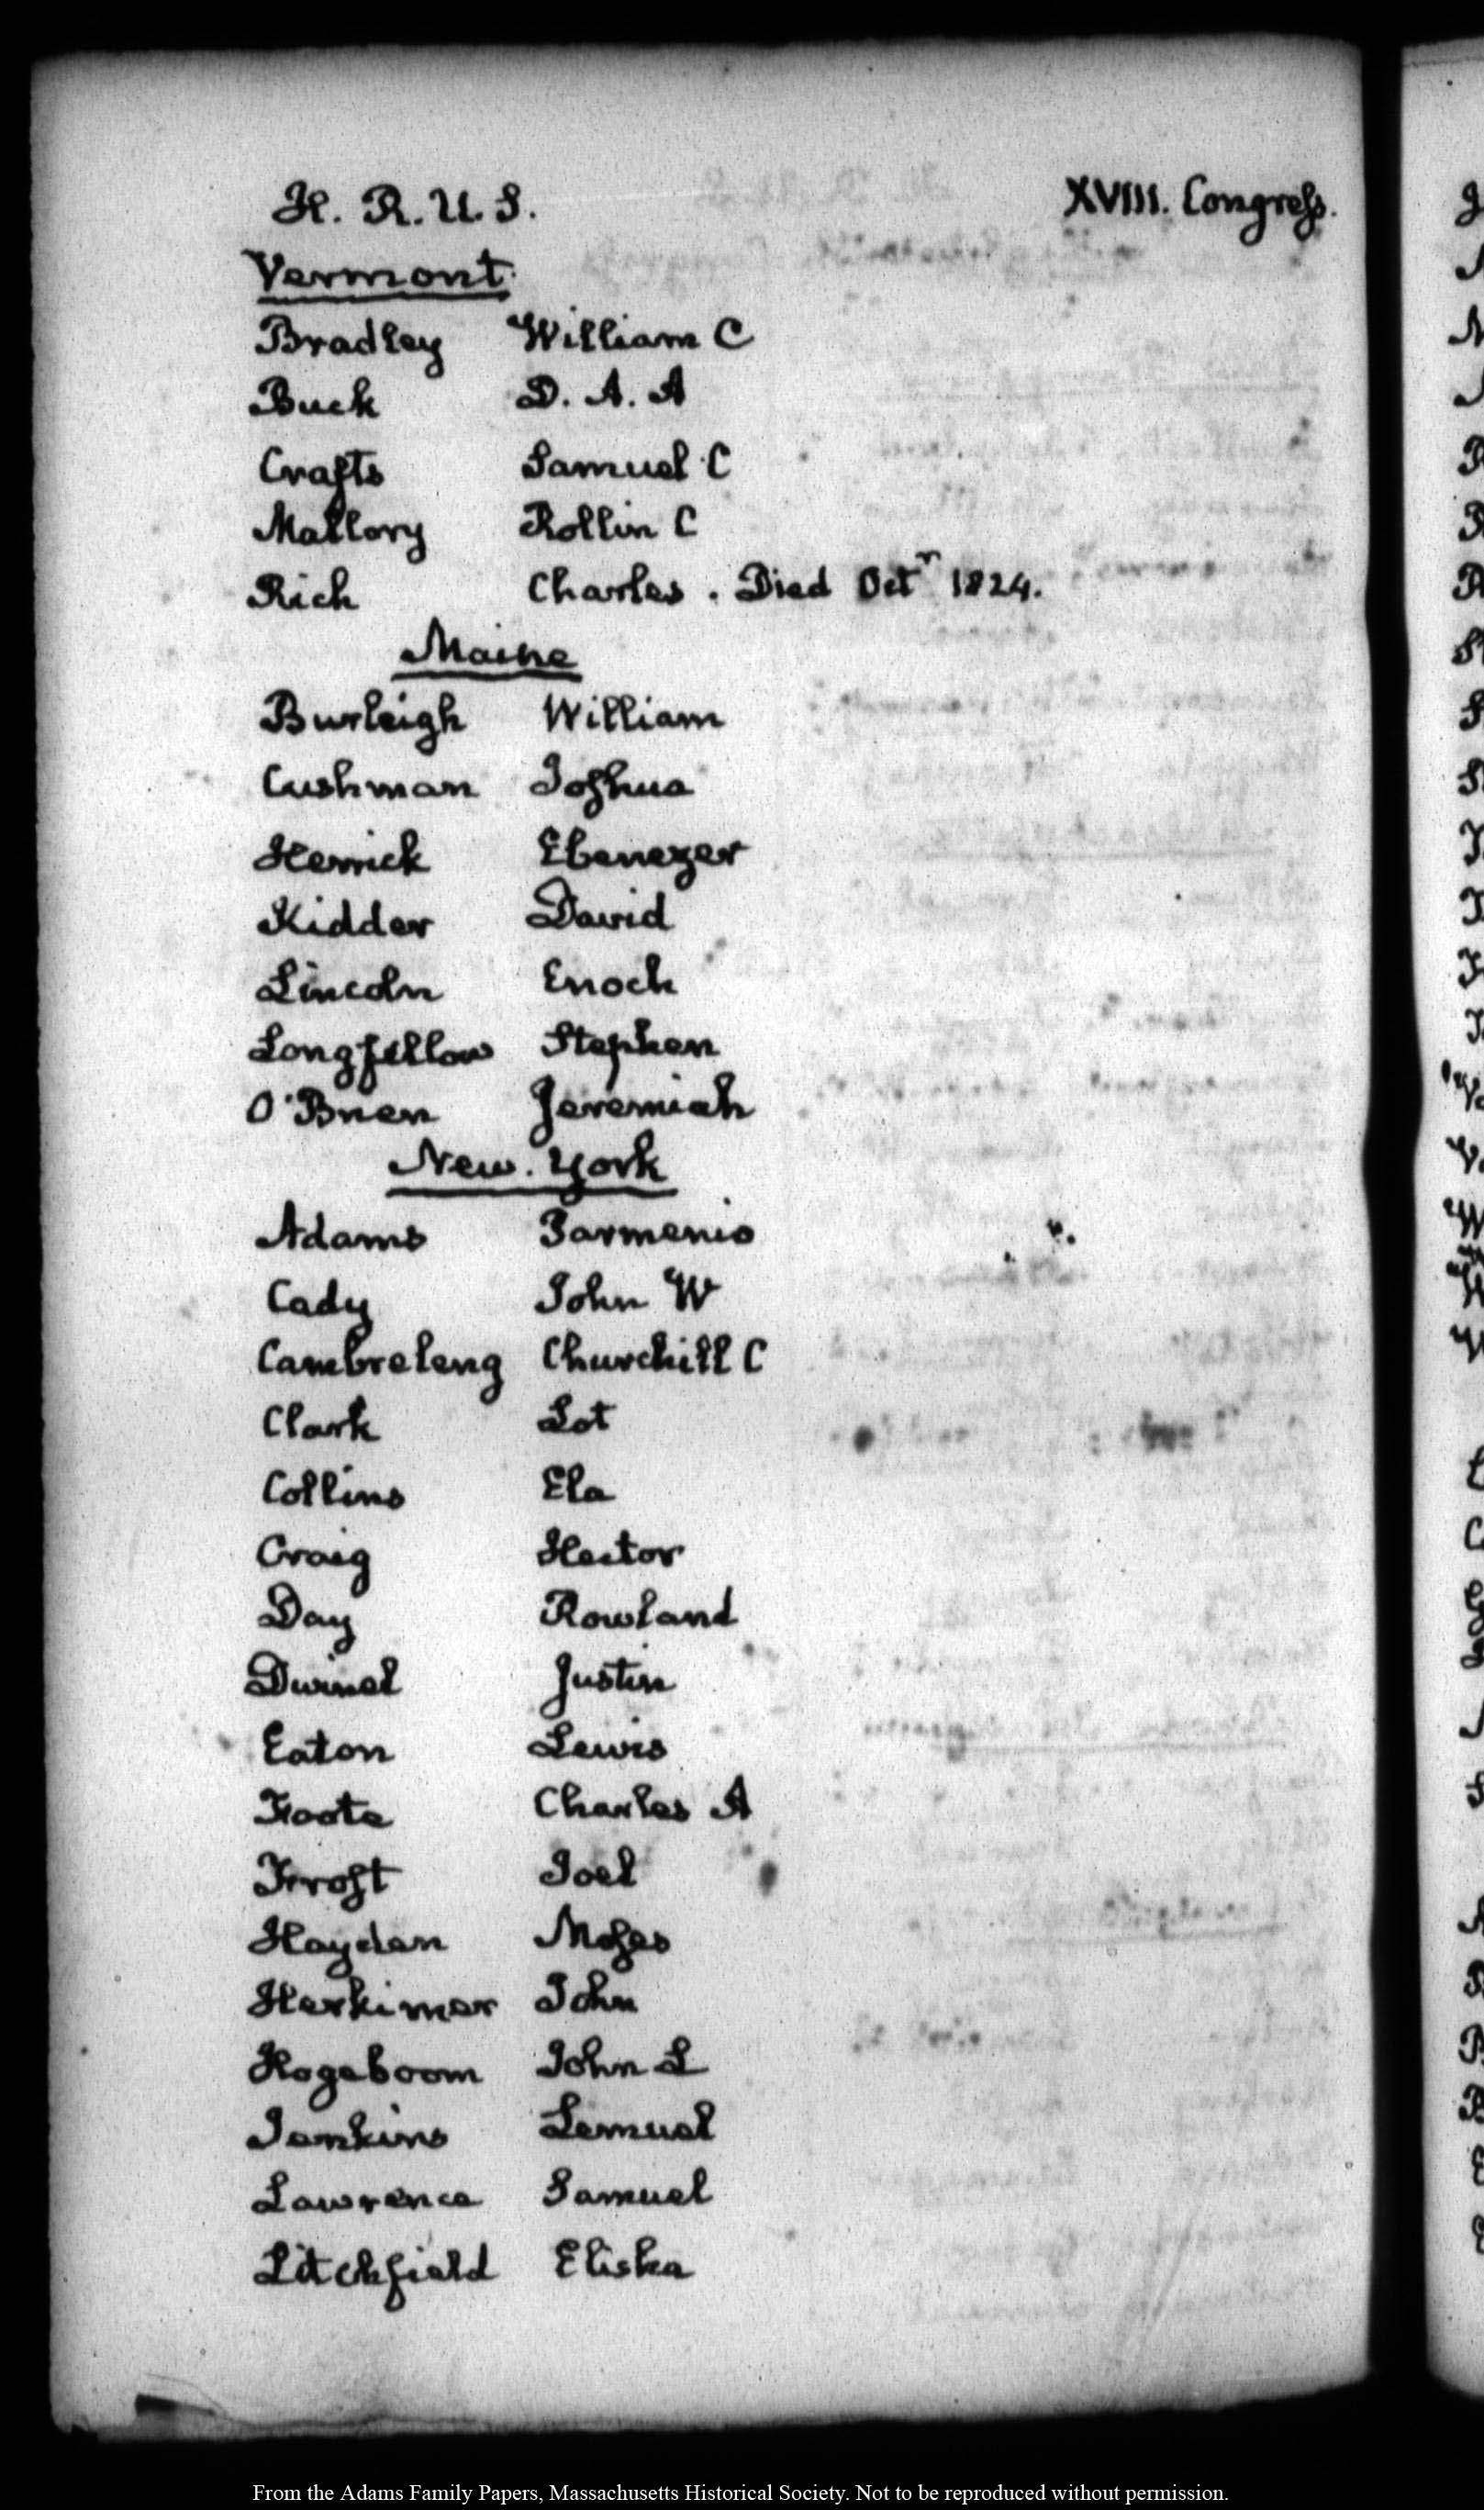 H. R. U. S. XVIII. Congress.
Vermont.
Bradley William C
Buck D. A. A
Crafts Samuel C
Mallory Rollin C
Rich Charles. Died Octr 1824.
Maine
Burleigh William
Cushman Joshua
Herrick Ebenezer
Kidder David
Lincoln Enoch
Longfellow Stephen
O'Brien Jeremiah
New. York
Adams Parmenio
Cady John W
Cambreleng Churchill C
Clark Lot
Collins Ela
Craig Hector
Day Rowland
Dwinel Justin
Eaton Lewis
Foote Charles A
Frost Joel
Hayden Moses
Herkimer John
Hogeboom John L
Jenkins Lemuel
Lawrence Samuel
Litchfield Elisha
From the Adams Family Papers, Massachusetts Historical Society. Not to be reproduced without permission.